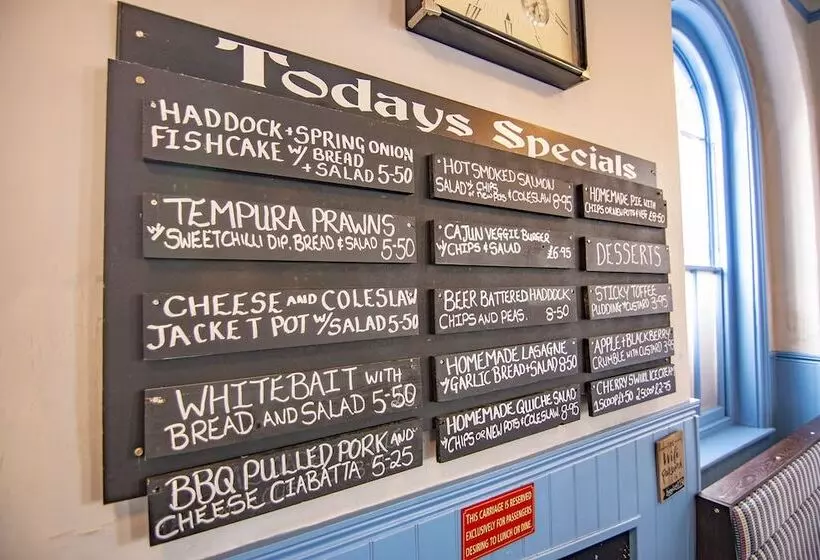 Todays Specials
HADDOCK + SPRING ONION
FISHCAKE W/ BREAD
+ SALAD 5-50
TEMPURA PRAWNS
W/ SWEETCHILLI DIP, BREAD & SALAD 5-50
CHEESE AND COLESLAW
JACKET POT W/ SALAD 5-50
WHITEBAIT WITH
BREAD AND SALAD 5-50
BBQ PULLED PORK AND
CHEESE CIABATTA 5-25
HOT SMOKED SALMON
SALAD W/ CHIPS
OR NEW POTS & COLESLAW 8-95
CAJUN VEGGIE BURGER
W/ CHIPS & SALAD £6-95
BEER BATTERED HADDOCK
CHIPS AND PEAS. 8-50
HOMEMADE LASAGNE
W/ GARLIC BREAD & SALAD 8-50
HOMEMADE QUICHE SALAD
W/ CHIPS OR NEW POTS & COLESLAW 8-95
HOMEMADE PIE WITH
CHIPS OR NEW POTS & VEG £8-50
DESSERTS
STICKY TOFFEE
PUDDING W/ CUSTARD 3-95
APPLE + BLACKBERRY
CRUMBLE WITH CUSTARD 3-95
CHERRY SWIRL ICECREAM
1 SCOOP £1-50 2 SCOOP £2-95
THIS CARRIAGE IS RESERVED
EXCLUSIVELY FOR PASSENGERS
DESIRING TO LUNCH OR DINE.
Wifi